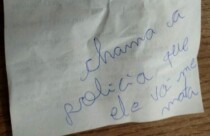 chama a
policia que
ele vá me
matar